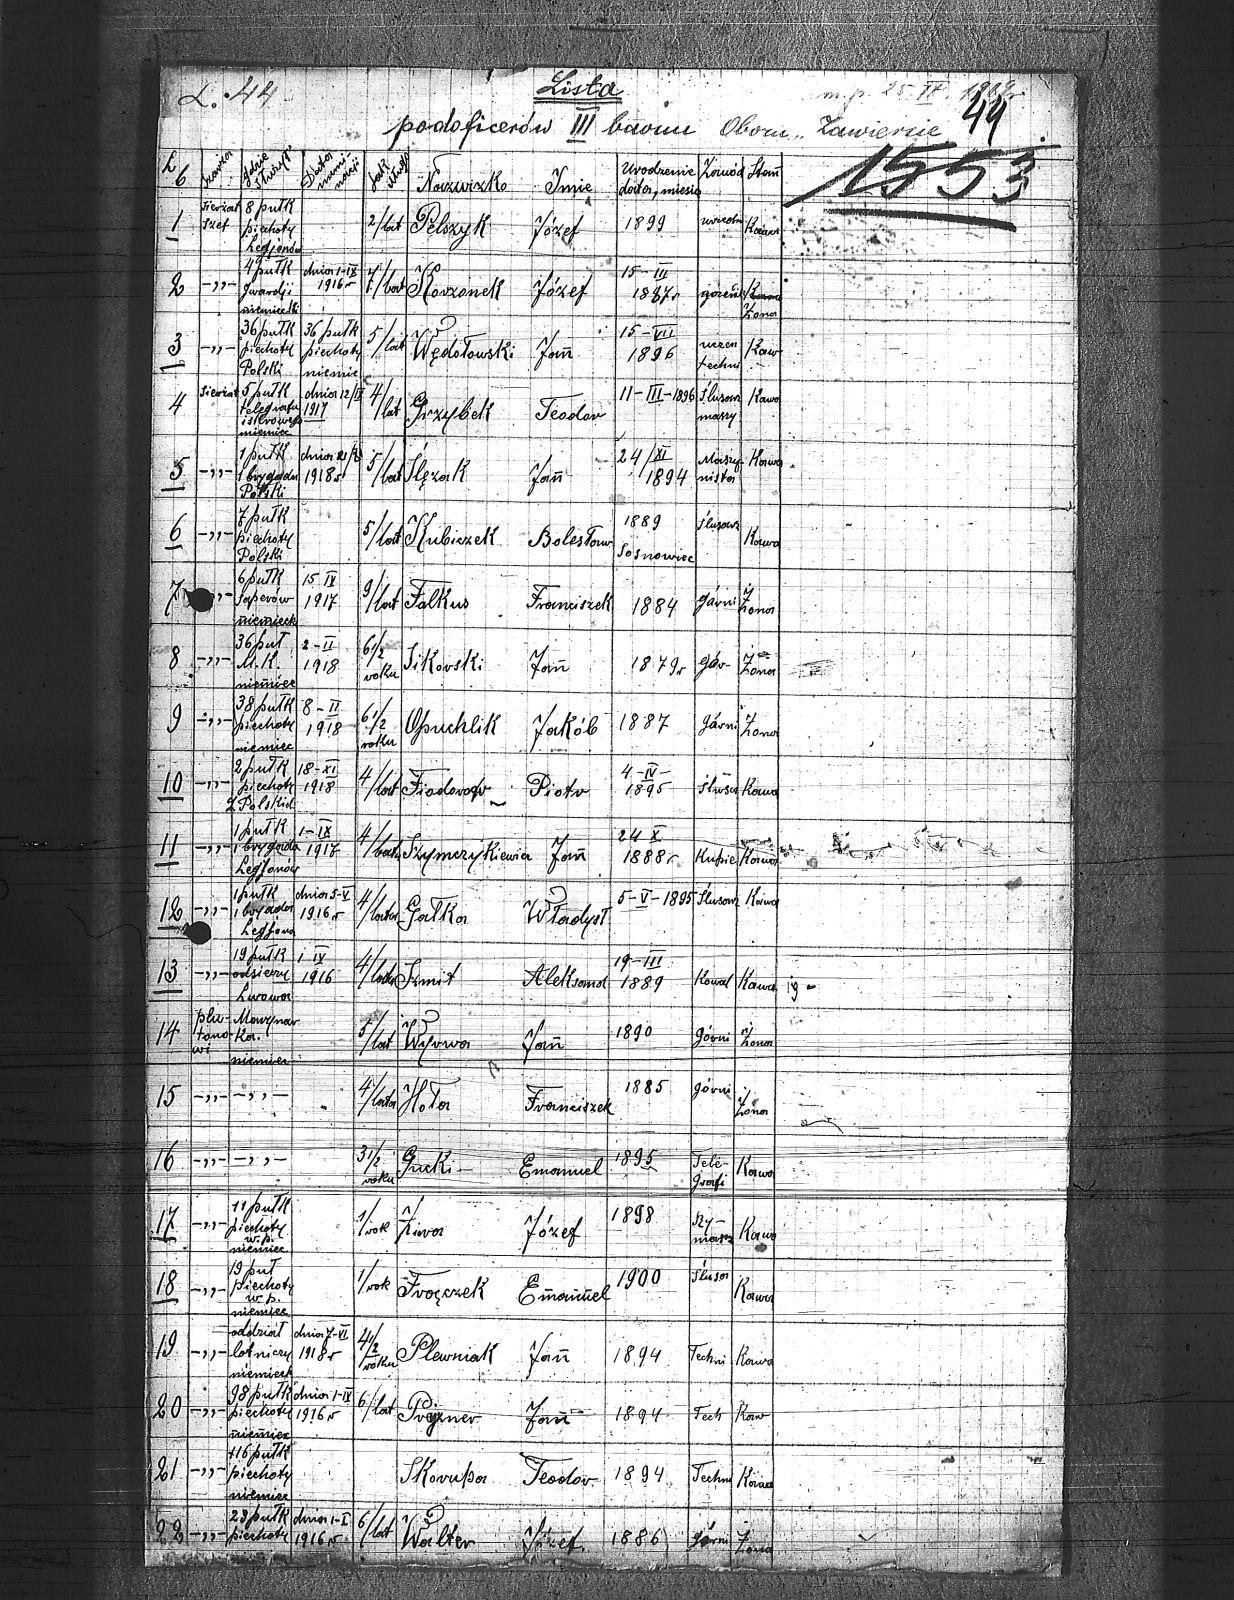 L. 44
Lista
m.p. 25
podoficerów III baonu Obozu „Zawiercie
44
1553
L 6 gdzie służył Nazwizko Imie Urodzenie data, miesią Zawód Stan
1 Sierżat szef 8 pułk piechoty Legjonów 2/lat Pelszyk Józef 1899 Kawa
2 -„- 4 pułk gwardji niemiecki dnia 1-IX 1916r 7/lat Józef 15-III 1887r Żona
3 -„- 36 pułk piechoty Polski 36 pułk piechoty niemie 5/lat Wędołowski Jan 15-VII 1896 uczeń techni Kaw
4 Sierżat 5 pułk telegrafu niemiec dnia 12/IX 1917 4/lat Grzybek Teodor 11-III-1896 Ślusarz maszy Kawa
5 -„- 1 pułk 1 brygada Polski 1918r 5/lat Ślęzak Jan 24/XI 1894 Maszynista Kawa
6 -„- 7 pułk piechoty Polski 5/lat Kubiczek Bolesław 1889 Sosnowiec Ślusarz Kawa
7 -„- 6 pułk saperów niemieck 15 IX 1917 9/lat Falkus Franciszek 1884 górni Żona
8 -„- 36 puł M.K. niemiec 2-II 1918 6 1/2 roku Sikorski Jan 1879r gór- Żona
9 -„- 38 pułk piechoty niemiec 8-II 1918 6 1/2 roku Opuchlik Jakób 1887 górni Żona
10 -„- 2 pułk piechoty Polski 18-XI 1918 4/lat Piotr 4-IV- 1895 ślusa Kawa
11 -„- 1 pułk 1 brygada Legjonów 1-IX 1917 4/lata Szymczykiewicz Jan 24 X 1888r Kupie Kawa
12 -„- 1 pułk 1 brygada Legjona dnia 5-V 1916r 4/lata Gałka Władysł 5-V-1895 Ślusarz Kawa
13 -„- 19 pułk odsieczy Lwowa 1 IX 1916 4/lata Szmit Aleksand 19-III 1889 Kowal Kawa
14 plutonowi Marynarka. niemiec 5/lat Wyrwa Jan 1890 górni Żona
15 -„- -„- 4/lata Hota Franciszek 1885 górni Żona
16 -„- -„- 3 1/2 roku Gucki Emanuel 1895 Telegrafi Kawa
17 -„- 11 pułk piechoty w.p. niemiec 1/rok Żiwa Józef 1898 Rymarz Kawa
18 -„- 19 puł piechoty w.p. niemiec 1/rok Frączek Emanuel 1900 Ślusar Kawa
19 -„- oddział lotniczy niemieck dnia 7-VI 1918r 4 1/2 roku Plewniak Jan 1894 Techni Kawa
20 -„- 98 pułk piechoty niemiec dnia 1-IV 1916r 6/lat Jan 1894 Tech Kaw
21 -„- 116 pułk piechoty niemiec Skorupa Teodor. 1894 Techni Kawa
22 -„- 23 pułk piechoty dnia 1-I 1916r. 6/lat Walter Józef. 1886 górni Żona